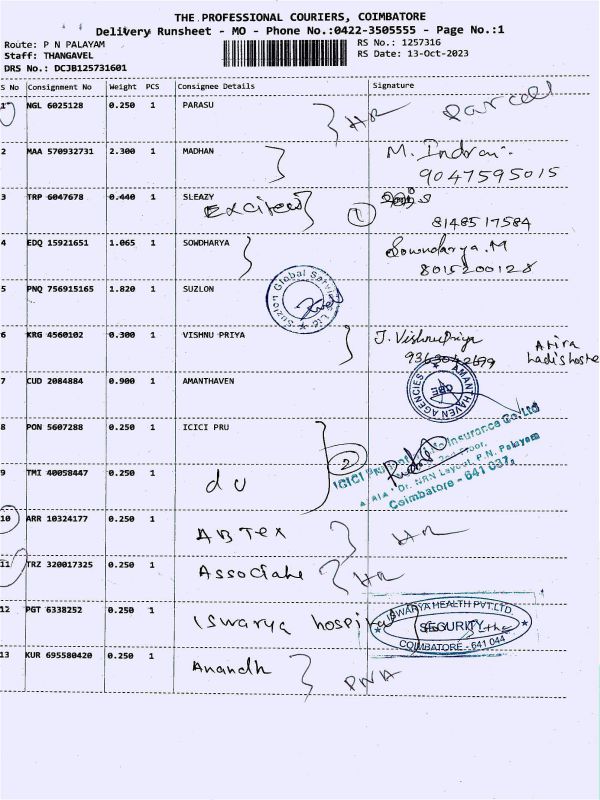 THE PROFESSIONAL COURIERS, COIMBATORE
Delivery Runsheet - MO - Phone No.:0422-3505555 - Page No.:1
Route: P N PALAYAM RS No.: 1257316
Staff: THANGAVEL RS Date: 13-Oct-2023
DRS No.: DCJB125731601
S No Consignment No Weight PCS Consignee Details Signature
1 NGL 6025128 0.250 1 PARASU HR Parcel
2 MAA 570932731 2.300 1 MADHAN M. Indrani
9047595015
3 TRP 6047678 0.440 1 SLEAZY
Excitees 1
8148517584
4 EDQ 15921651 1.065 1 SOWDHARYA Sowndarya.M
8015200128
5 PNQ 756915165 1.820 1 SUZLON
Suzlon Global Services Ltd
6 KRG 4560102 0.300 1 VISHNU PRIYA J. VishnuPriya
9363042699
Atira
ladishoste
7 CUD 2084884 0.900 1 AMANTHAVEN
AMANTHAVEN AGENCIES
CBE
8 PON 5607288 0.250 1 ICICI PRU
2
ICICI Life Insurance Co Ltd
2nd Floor,
Dr. NRN Layout, P.N. Palayam
Coimbatore - 641 037.
9 TMI 40058447 0.250 1 du
10 ARR 10324177 0.250 1 ABTEX HR
11 TRZ 320017325 0.250 1 Associate HR
12 PGT 6338252 0.250 1 Iswarya hospital
ISWARYA HEALTH PVT.LTD.
SECURITY
COIMBATORE - 641 044
13 KUR 695580420 0.250 1 Anandh PNA